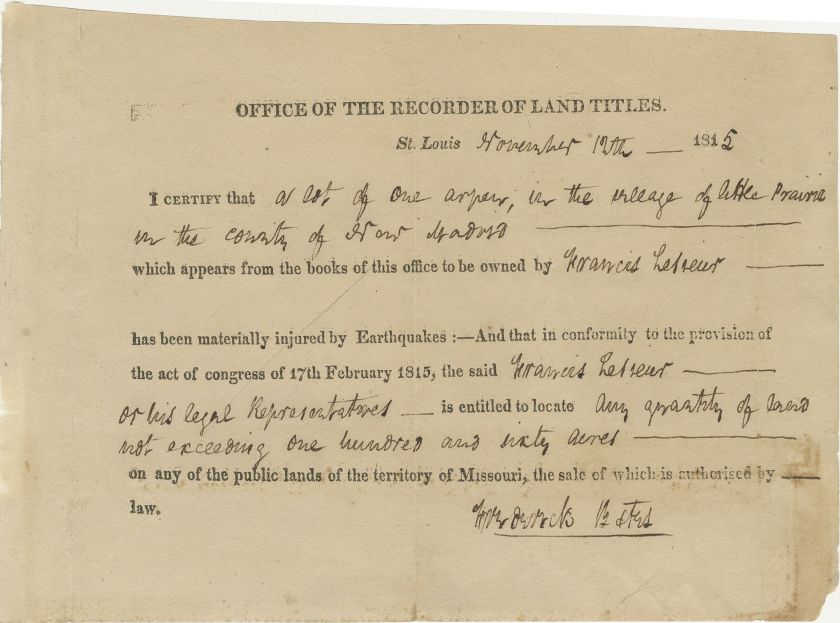 OFFICE OF THE RECORDER OF LAND TITLES.
St. Louis November 12th — 1815
I CERTIFY that a lot of one arpen, in the village of little Prairie
in the county of New Madrid —
which appears from the books of this office to be owned by Francis Lesieur —
has been materially injured by Earthquakes :—And that in conformity to the provision of
the act of congress of 17th February 1815, the said Francis Lesieur —
or his legal Representatives — is entitled to locate any quantity of land
not exceeding one hundred and sixty acres —
on any of the public lands of the territory of Missouri, the sale of which is authorised by —
law.
Frederick Bates